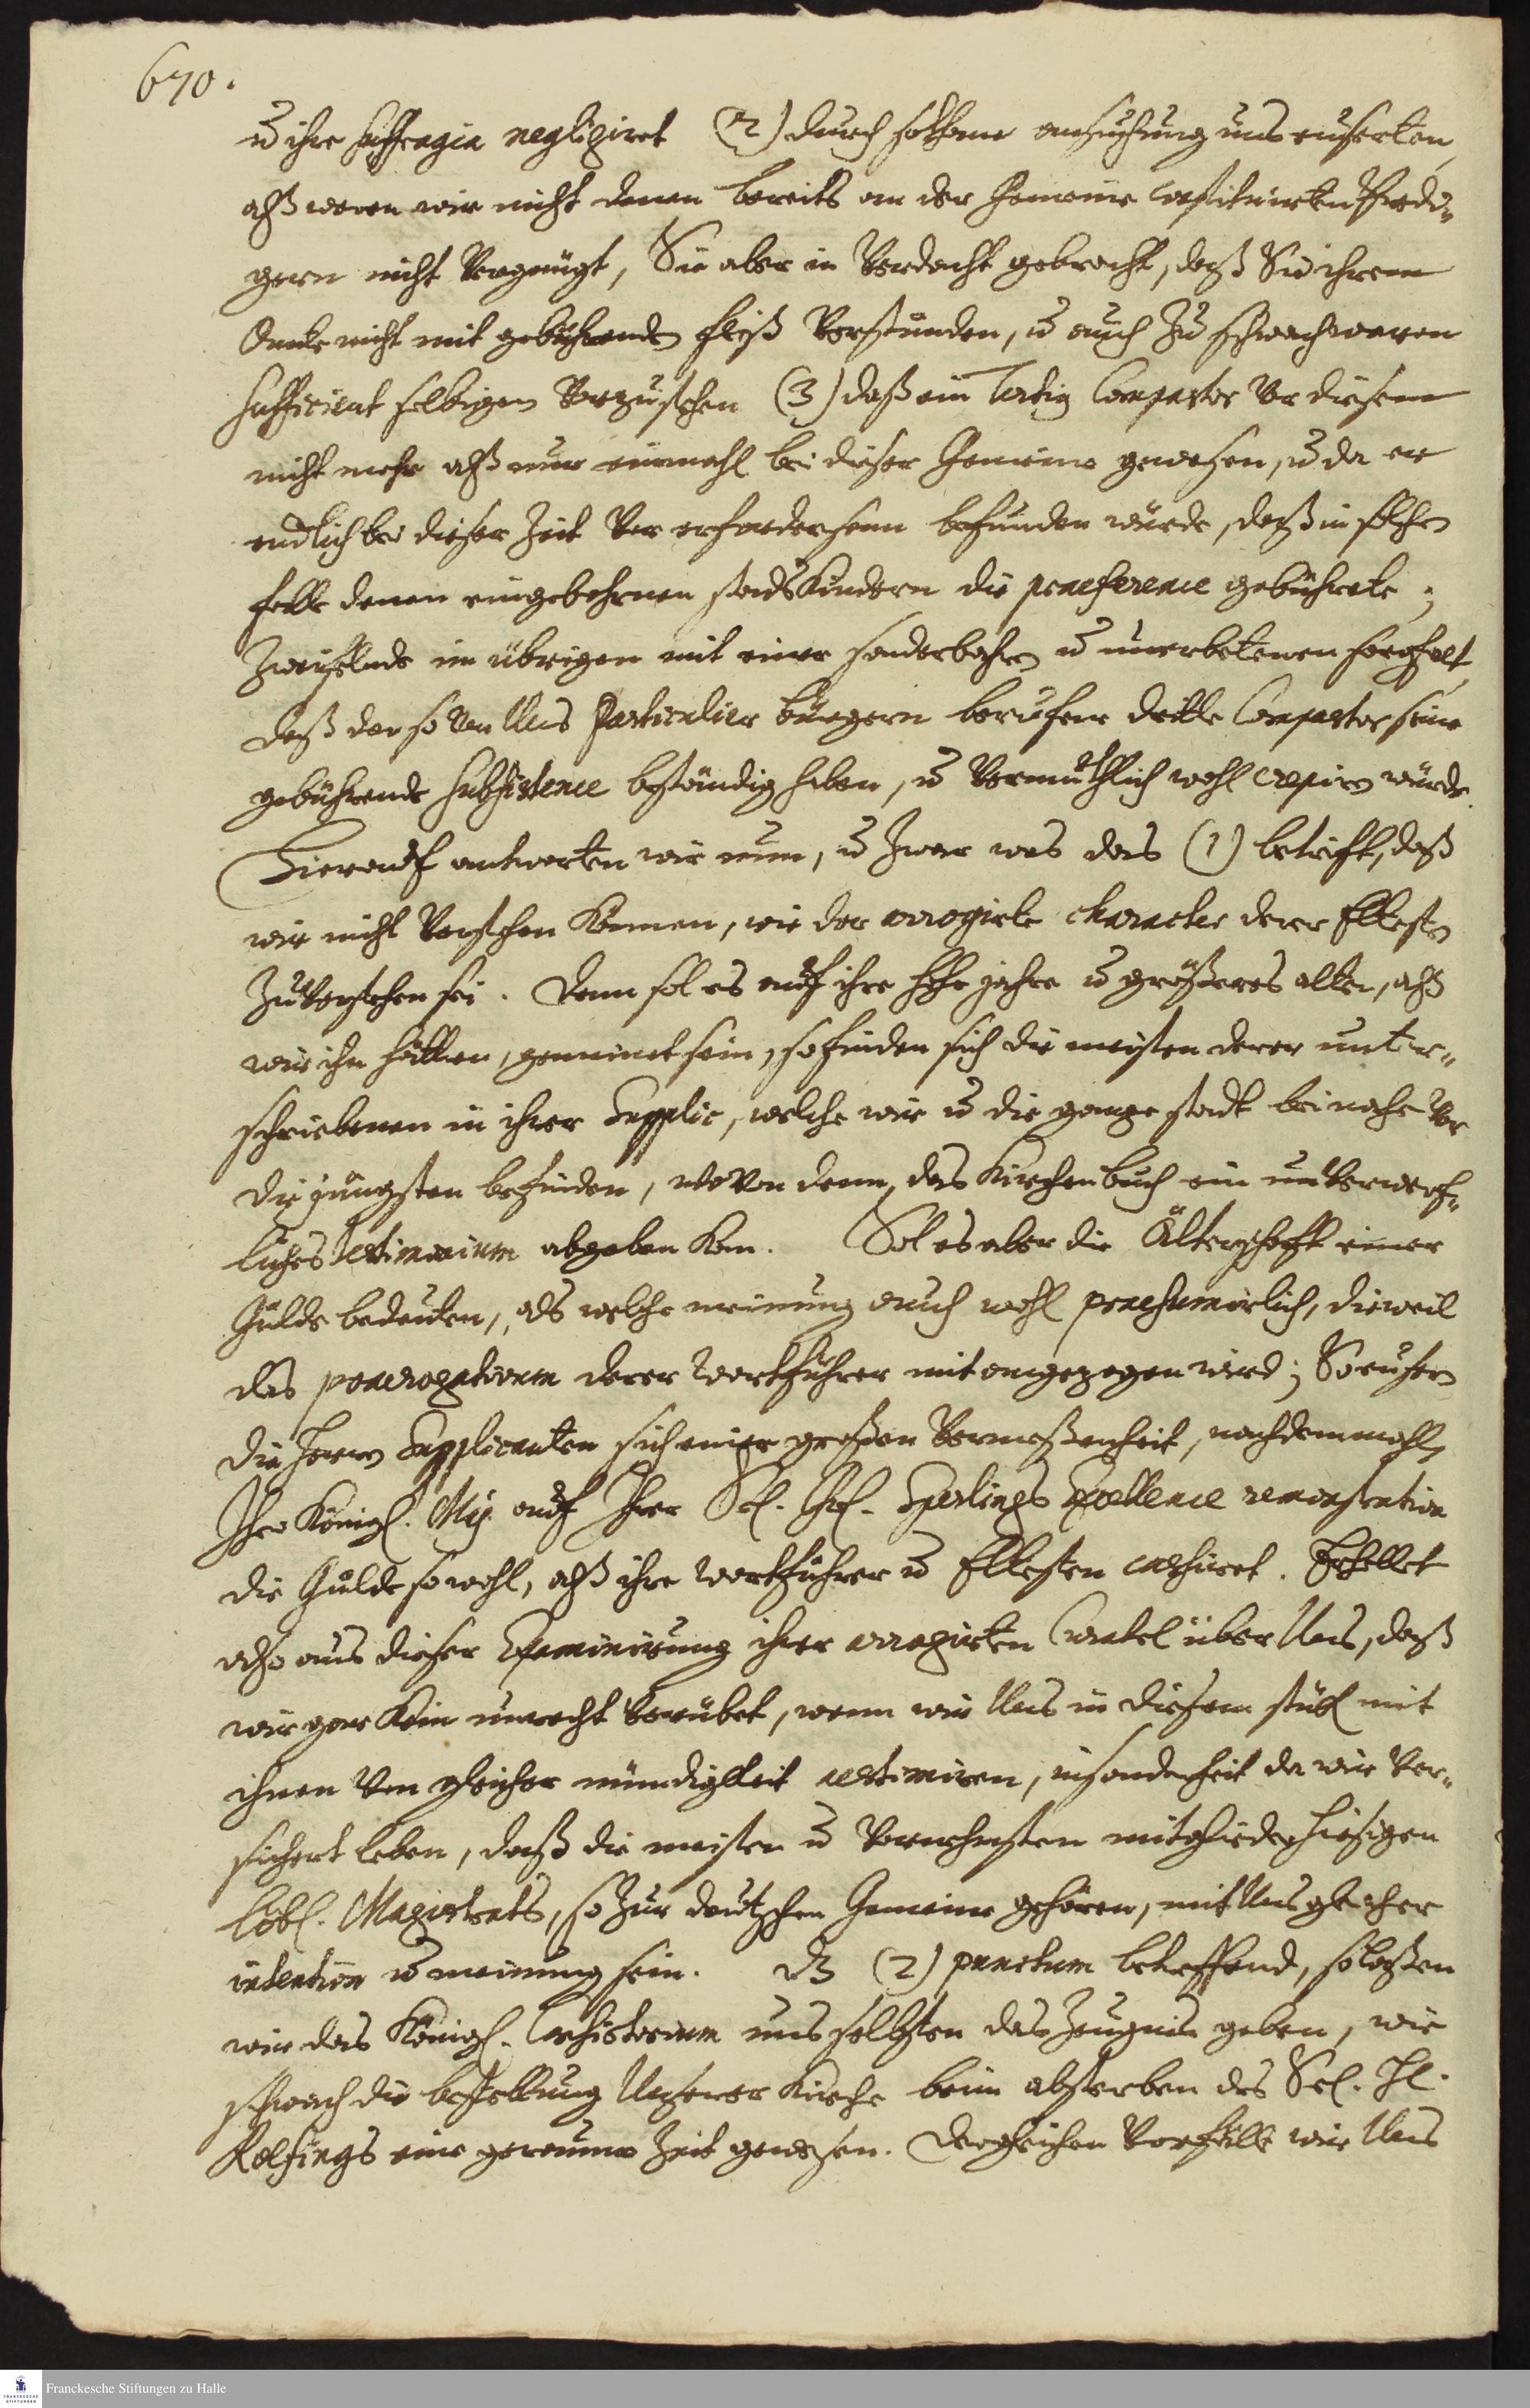 670.
u ihre suffragia negligiret (2) durch solchane ansuchung uns euserten,
alß weren wir nicht denen bereits an der Gemeine constituirten Predi„
gern nicht Vergnügt, Sie aber in Verdacht gebracht, daß Sie ihrem
Amte nicht mit gebührende fleiß Vorstünden, u auch zu schwach weren
sufficient selbigem Vorzustehen (3) daß ein Tertig Compastor Vor diesem
nicht mehr alß nur einmahl bei dieser Gemeine gewesen, u da er
endlich bei dieser Zeit Vor erfordersam befunden würde, daß in solchen
falle denen eingebohrnen stadskindern die praeference gebührete;
Zweifelnde im übrigen mit einer sonderbahren u unerbetenen sorgfalt,
daß der so Von Uns Particulier bürgern berufene dritte Compastor seine
gebührende subsistence beständig haben, u Vermuthlich wohl crepiren würde.
Hierauf antworten wir nun, u zwar was das (1) betrifft, daß
wir nicht Verstehen können, wie der arrogirte character derer Eltesten
zu Verstehen sei. Denn sol es auf ihre hohe jahre u größeres alter, alß
wir ihn hätten, gemeinet sein, so finden sich die meisten derer unter„
schriebenen in ihrer Supplic, welche wir u die gantze stadt beinahe Vor
die jüngsten befinden, wovon denn, das Kirchenbuch ein unVerwerf„
liches Testimonium abgeben kan. Sol es aber die Älterschafft einer
Gülde bedeuten, als welche meinung auch wohl praesumirlich, dieweil
das praerogativum derer Wortführer mit angezogen wird; So rufen
die Herren Supplicanten sich einer großen Vermeßenheit, nachdemmahl,
Ihro Königl. Maj. auf Ihrer Sel. Gfl. Sperlings Excellence remonstration
die Gülde sowohl, alß ihre Wortführer u Eltesten cashiret. Erhellet
also aus dieser Examinirung ihrer arrogirten Curatel über Uns, daß
wir gar kein unrecht Verübet, wenn wir Uns in diesem stük mit
ihnen Von gleicher mündigkeit aestimiren, insonderheit da wir Ver„
sichert leben, daß die meisten u Vornehmsten mitglieder hiesigen
löbl. Magistrats, so zur deutschen Gemeine gehören, mit Uns gleicher
intention u meinung sein. dz (2) punctum betreffend, so laßen
wir das Königl. Consistorium uns selbsten das Zeugnis geben, wie
schwach die bestellung Unserer Kirche beim absterben des Sel. Hl.
Rolfings eine geraume Zeit gewesen. Dergleichen Vorfälle wir Uns
Franckesche Stiftungen zu Halle